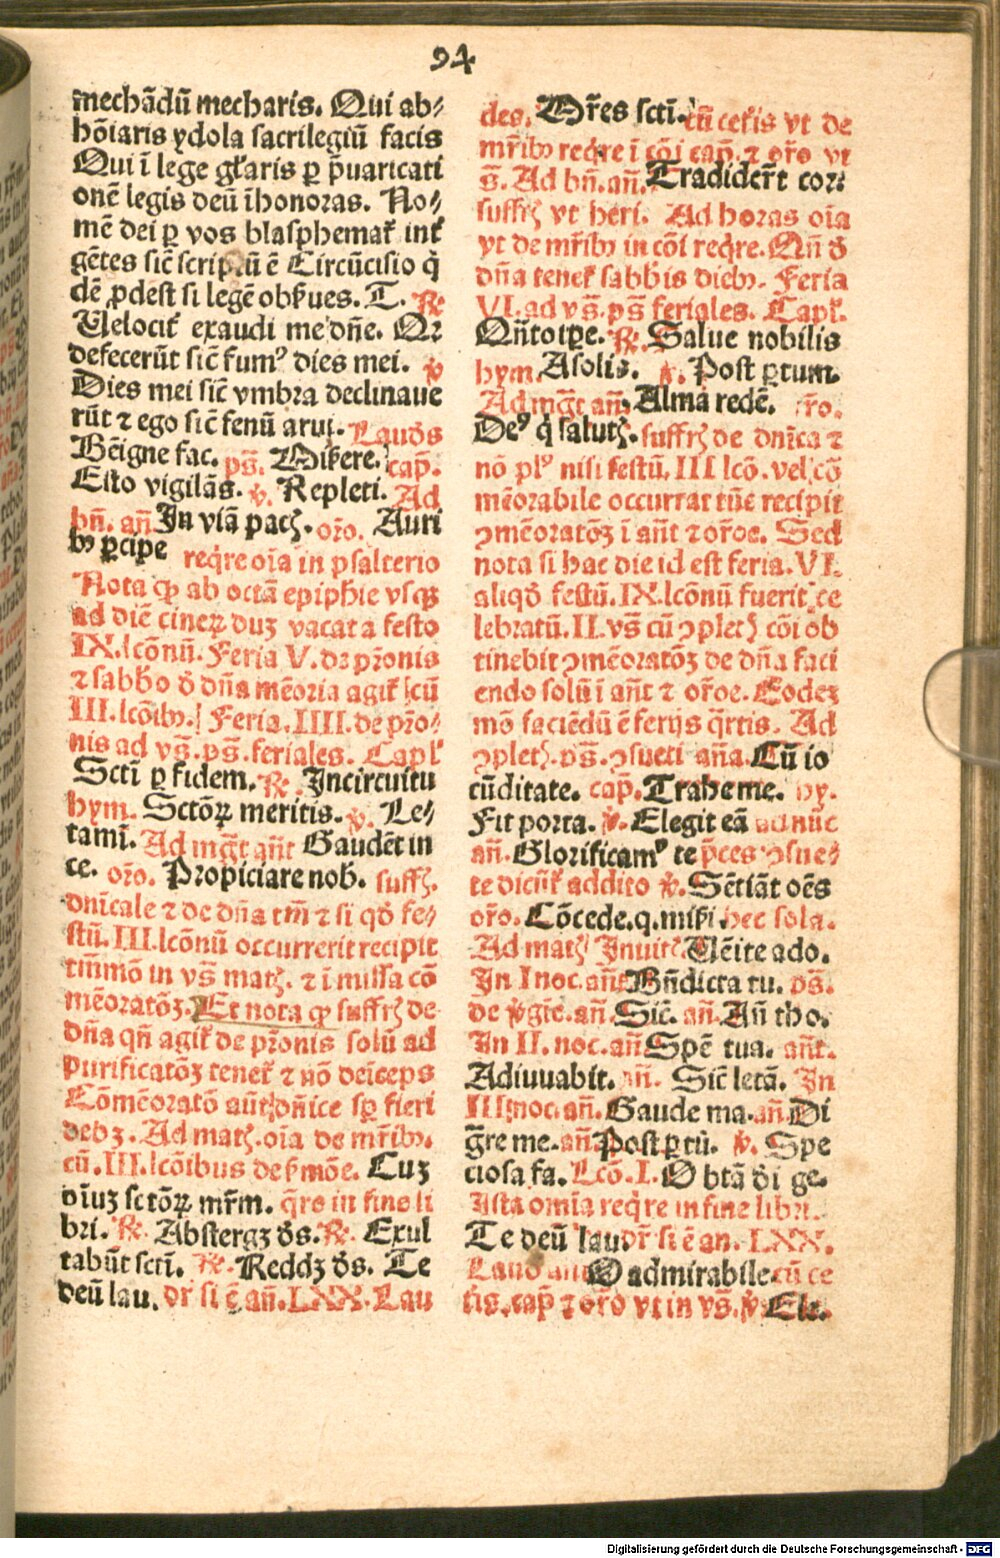 94
mechādū mecharis. Qui ab⸗
hōiaris ydola sacrilegiū facis
Qui ī lege gl'aris ꝑ p̄uaricati
onē legis deū īhonoras. No⸗
mē dei ꝑ vos blasphemat᷑ int᷑
gētes sic̄ scriptū ē Circūcisio q̇
dē ꝓdest si legē obs̄ues. T. ℟
Uelocit᷑ exaudi me dn̄e. Qꝛ
defecerūt sic̄ fum⁹ dies mei. ℣
Dies mei sic̄ vmbra declinaue
rūt ⁊ ego sic̄ fenū arui. Laudꝭ
Bēigne fac. ps̄. Miẜere. cap̄.
Esto vigilās. ℣. Repleti. Ad
bn̄. an̄ In viā pacꝭ. or̄o. Auri
bꝰ ꝑcipe reqͥre oīa in psalterio
Nota ꝙ ab octā epiphie vsqꝫ
ad diē cineꝝ duꝫ vacat a festo
IX. lcōnū. Feria V. dꝛ pr̄onis
⁊ sabb̄o ō dn̄a mēoria agit᷑ cū
III. lcōibꝰ. Feria. IIII. de pr̄o⸗
nis ad vs̄. ps̄. feriales. Capl'
Sctī ꝑ fidem. ℟. Incircuitu
hym. Sctōꝝ meritis. ℣. Le⸗
tamī. Ad mg̅t an̄t Gaudēt in
ce. or̄o. Propiciare nob̄. suffꝭ.
dn̄icale ⁊ de dn̄a tm̄ ⁊ si qd̄ fe⸗
stū. III. lcōnū occurrerit recipit
tm̄mō in vs̄ matꝭ. ⁊ ī missa cō
mēoratōꝫ. Et nota ꝙ suffꝭ de
dn̄a qn̄ agit᷑ de pr̄onis solū ad
purificatōꝫ tenet᷑ ⁊ nō deīceps
Cōmēoratō aūt dn̄ice sꝑ fieri
debꝫ. Ad matꝭ. oīa de mr̄ibꝰ.
cū. III. lcōibus de ẜmōe. Cuꝫ
dīuꝫ sctōꝝ mr̄m. q̄re in fine li
bri. ℟. Abstergꝫ ds̄. ℟. Exul
tabūt sctī. ℟. Reddꝫ ds̄. Te
deū lau. dr̄ si ē an̄. LXX. Lau
des. Om̄es sctī. cū cet᷑is vt de
mr̄ibꝰ reqͥre ī cōi cap̄. ⁊ or̄o vt
s̄. Ad bn̄. an̄. Tradider̄t coꝛ⸗
suffꝭ vt heri. Ad horas oīa
vt de mr̄ibꝰ in cōi reqͥre. Qn̄ ō
dn̄a tenet᷑ sabbīs diebꝰ. Feria
VI. ad vs̄. ps̄ feriales. Capl'.
Qn̄toiꝑe. ℟. Salue nobilis
hym. Asolis. ℣. Post ꝑtum.
Ad mg̅t an̄. Alma redē. or̄o.
De⁹ q̇ salutꝭ. suffꝭ de dn̄ica ⁊
nō pl⁹ nisi festū. III lcō. vel cō
mēorabile occurrat tūc recipit
ꝯmēoratōꝫ ī an̄t ⁊ or̄oe. Sed
nota si hac die id est feria. VI.
aliqd̄ festū. IX. lcōnū fuerit ce
lebratū. II. vs̄ cū ꝯpletꝭ cōi ob
tinebit ꝯmēoratōꝫ de dn̄a faci
endo solū ī an̄t ⁊ or̄oe. Eodeꝫ
mō faciēdū ē ferijs q̄rtis. Ad
ꝯpletꝭ. ps̄. ꝯsueti an̄a. Cū io
cūditate. cap̄. Trahe me. hy.
Fit porta. ℣. Elegit eā ad nūc
an̄. Glorificam⁹ te p̄ces ꝯsue⸗
te dicūt᷑ addito ℣. Sētiāt oēs
or̄o. Cōcede. q. miẜi. hec sola.
Ad matꝭ Inuitꝭ. Uēite ado.
In I noc. an̄t Bn̄dicta tu. ps̄.
de ℣gīe. an̄. Sic̄. an̄. An̄ tho.
In II. noc. an̄ Spē tua. an̄t.
Adiuuabit. an̄. Sic̄ letā. In
III noc. an̄. Gaude ma. an̄. Di
gre me. an̄ Post ꝑtū. ℣. Spe
ciosa fa. Lcō. I. O btā di ge.
Ista omīa reqͥre in fine libri.
Te deū lau. dr̄ si ē an. LXX.
Laud an̄ O admirabile. cū ce
tis. cap̄ ⁊ or̄o vt in vs̄. ℣ Ele.
Digitalisierung gefördert durch die Deutsche Forschungsgemeinschaft - DFG